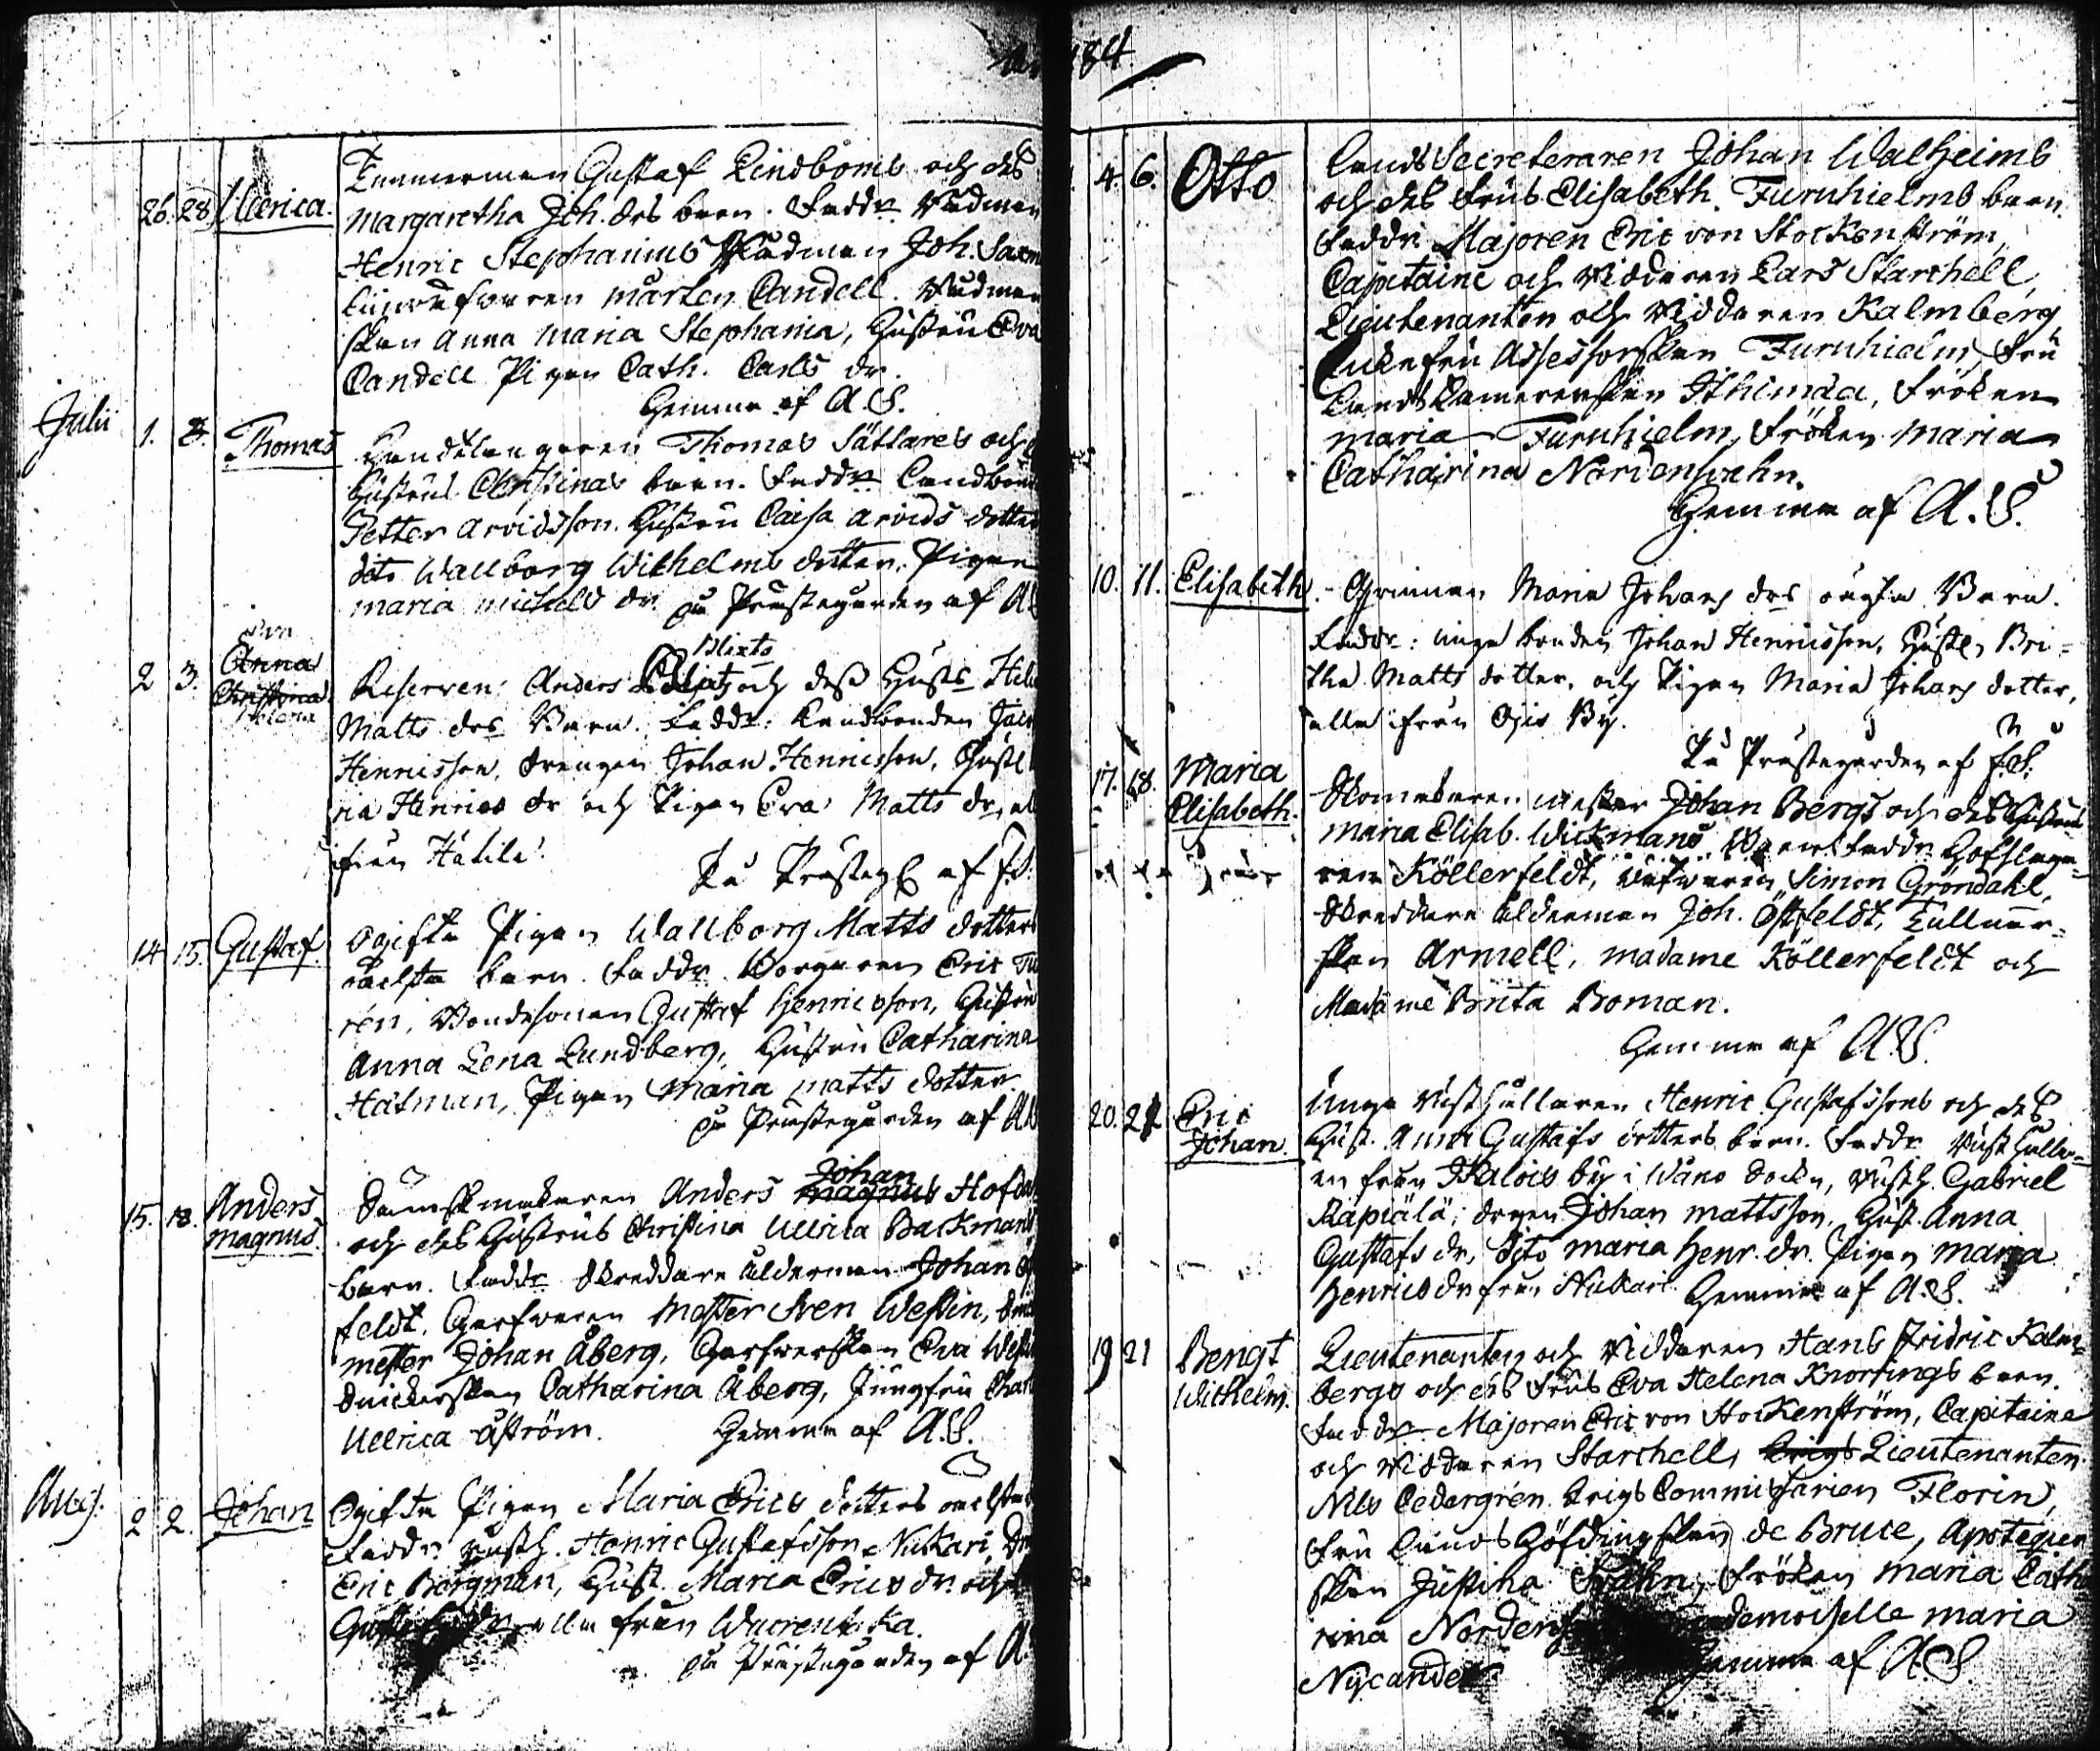 184.
26. 28 Ullrica.
Timmerman Gustaf Lindboms och des
Margaretha Joh. drs barn. Faddr. Rådman
Henric Stephanius Rådman Joh.
Mårten Candell. Rådman
skan Anna Maria Stephania, Hustru Eva
Candell Pigan Cath. Carls dr.
Hemma af A.S.
Julii 1. 3. Thomas
Handtlangaren Thomas Sättares och
hustrus Christinas barn. Faddr. Landbond
Petter Arvidsson. Hustru Caisa Arvids dotter
dito Wallborg Wilhelms dotter. Pigan
Maria Michels dr. På Prästegården af A.
2 3. Anna Christina Helena
Blixts
Reserven: Anders och dess Hustr. Hele
Matts drs Barn. Faddr: Landbonden Jac
Henricsson, Drengen Johan Henricsson, Hustr.
ria Henrics dr och Pigan Eva Matts dr, al
ifrån Hätilä.
På Prästeg. af F.S.
14 15. Gustaf.
Ogifta Pigan Wallborg Matts dotters
oächta barn. Faddr. Borgaren Eric Tu
rén, Bondesonen Gustaf Henricsson, Hustru
Anna Lena Lundberg, Hustru Catharina
Hatman, Pigan Maria Matts dotter.
På Prästegården af A
15. 18. Anders Magnus.
Johan
Anders Magnus Hofda
och des Hustrus Christina Ullrica Backmans
barn. Faddr. Skreddare Ålderman Johan Öst
feldt. Garfvaren Mester Sven Westin,
mester Johan Åberg, Garfverskan Eva Westi
Snickerskan Catharina Åberg, Jungfru Char
Ullrica Åström. Hemma af A.S.
Aug. 2 2. Johan
Ogifta Pigan Maria Erics dotters oächta
Faddr. Rusth. Henric Gustafsson Nukari,
Eric Borgman, Hust. Maria Erics dr och
alla från Wuorentaka.
På Prästegården af A.
4. 6. Otto
Lands Secreteraren Johan Walheims
och des Frus Elisabeth. Furuhielms barn.
Faddr. Majoren Eric von Stockenström,
Capitaine och Riddaren Lars Starchell,
Lieutenanten och Riddaren Kalmberg
Enkefru Assessorskan Furuhielm, Fru
Lands Camererskan Ithimæa, Fröken
Maria Furuhielm, Fröken Maria
Catharina Nordenswahn.
Hemma af A.S.
10. 11. Elisabeth.
Maria Johans drs oägta Barn.
Faddr: unga bonden Johan Henricsson, Hustr. Bri=
tha Matts dotter, och Pigan Maria Johans dotter,
alla ifrån Ojois By.
På Prästegården af F.S.
17. 18. Maria Elisabeth.
Skomakaren mester Johan Bergs och des Hustrus
Maria Elisab. Wickmans Barn. Faddr. Hofslaga=
ren Köllerfeldt, Simon Gröndahl,
Skreddare Ålderman Joh. Östfeldt, Tullnär=
skan Armell, Madame Köllerfeldt och
Madame Brita Boman.
Hemma af A.S.
20. 21 Eric Johan.
Unga Rusthållaren Henric Gustafssons och des
Hust. Anna Gustafs dotters barn. Faddr. Rusthålla=
en från Kalois by i Wåno Sockn, Rusth. Gabriel
Rapiälä, drgen Johan Mattsson, Hust. Anna
Gustafs dr, dito Maria Henr. dr. Pigan Maria
Henrics dr från Nukari. Hemma af A.S.
19 21 Bengt Wilhelm.
Lieutenanten och Riddaren Hans Fridric Kalm=
bergs och des Frus Eva Helena Knorrings barn.
Faddr. Majoren Eric von Stockenström, Capitaine
och Riddaren Starchell, Krigs Lieutenanten
Nils Cedergrén. Krigs Commissarien Florin,
Fru Lands Höfdingskan de Bruce, Apoteqer
skan Justina Frahn, Fröken Maria Catha
rina Nordens demoiselle Maria
Nycander Hemma af A.S.